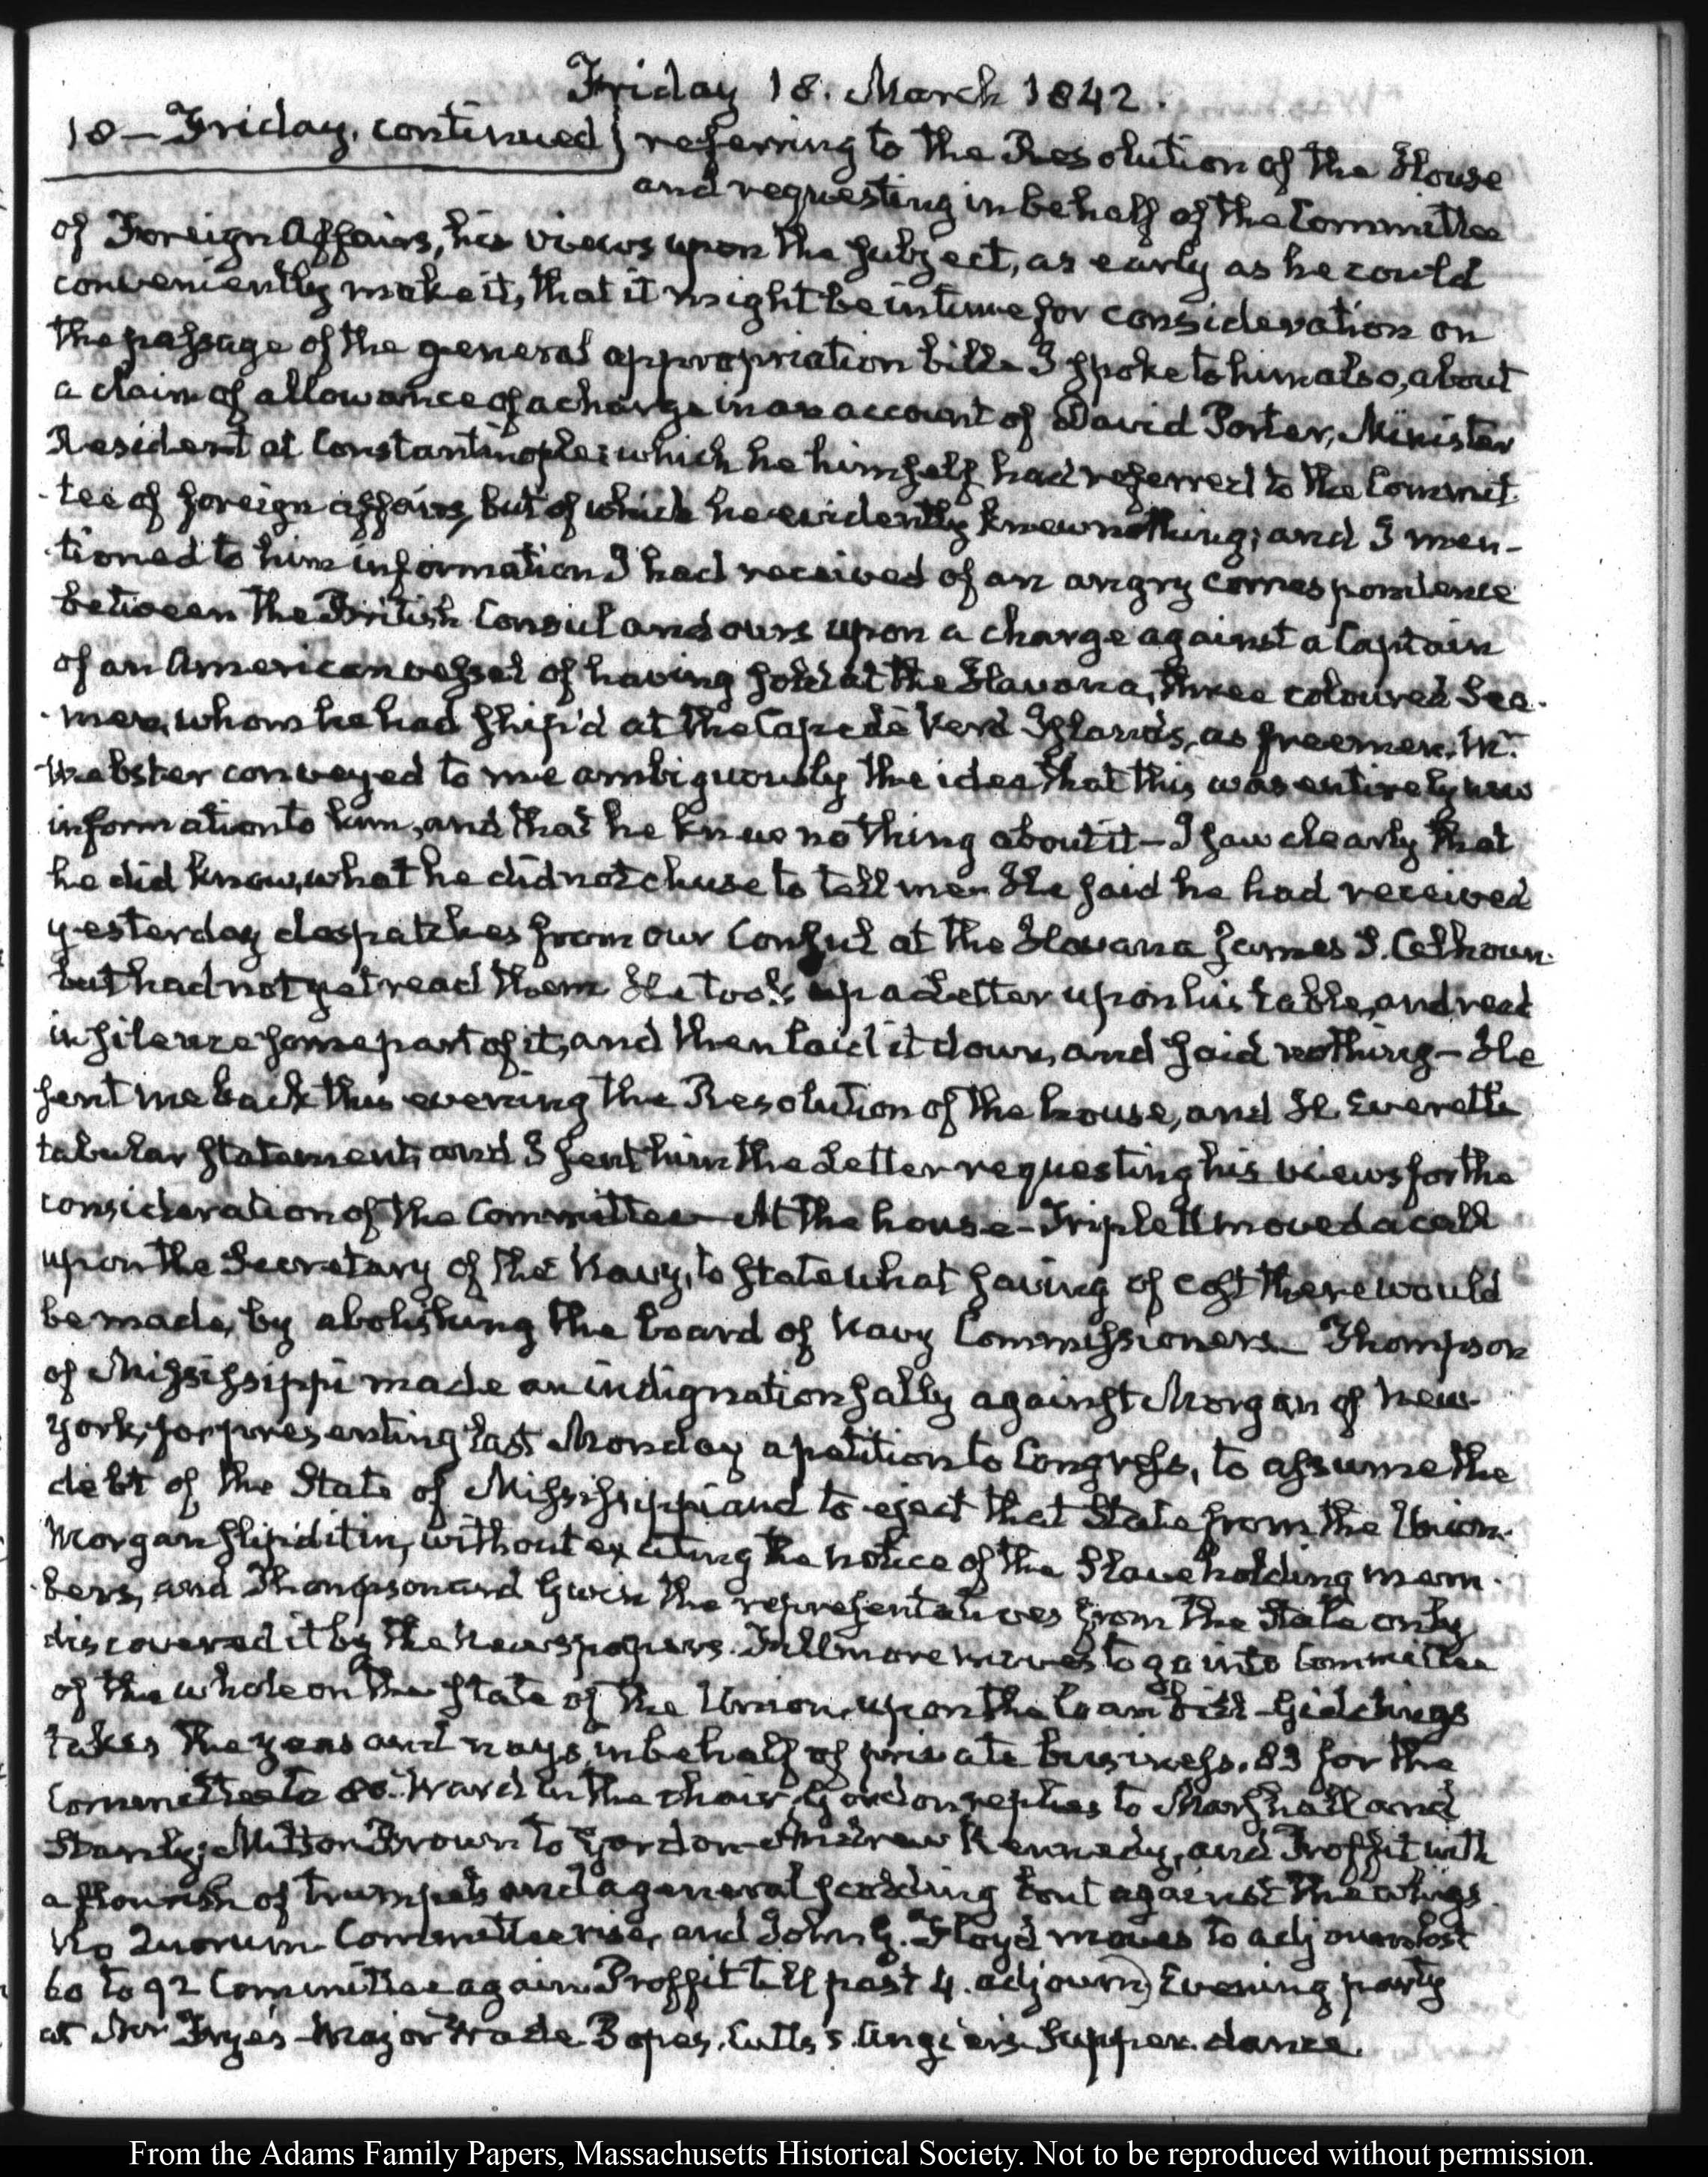 Friday 18. March 1842.
18 – Friday, continued} referring to the Resolution of the House
and requesting in behalf of the Committee
of Foreign Affairs, his views upon the subject, as early as he could
conveniently make it, that it might be in time for consideration on
the passage of the general appropriation bill – I spoke to him also, about
a claim of allowance of a charge in an account of David Porter, Minister
Resident at Constantinople; which he himself had referred to the Commit-
-tee of foreign affairs, but of which he evidently knew nothing; and I men-
-tioned to him information I had received of an angry correspondence
between the British Consul and ours upon a charge against a Captain
of an American vessel of having sold at the Havana, three coloured Sea-
-men, whom he had ship'd at the Cape de Verd Islands, as freemen. Mr.
Webster conveyed to me ambiguously the idea that this was entirely new
information to him, and that he knew nothing about it – I saw clearly that
he did know, what he did not chuse to tell me – He said he had received
yesterday despatches from our Consul at the Havana James S. Calhoun.
but had not yet read them He took up a Letter upon his table, and read
in silence some part of it, and then laid it down, and said nothing – He
sent me back this evening the Resolution of the house, and H. Everett's
tabular statement, and I sent him the Letter requesting his views for the
consideration of the Committee – At the house – Triplett moved a call
upon the Secretary of the Navy, to state what saving of cost there would
be made, by abolishing the board of Navy Commissioners – Thompson
of Mississippi made an indignation sally against Morgan of New-
York, for presenting last Monday a petition to Congress, to assume the
debt of the State of Mississippi and to eject that State from the Union.
Morgan slip'd it in, without exciting the notice of the Slave holding mem-
-bers, and Thompson and Gwin the representatives from the State only
discovered it by the Newspapers. Fillmore moves to go into Committee
of the whole on the state of the Union, upon the loan bill – Giddings
takes the yeas and nays, in behalf of private business. 83 for the
Committee to 80. Ward in the chair, Gordon replies to Marshall and
Stanly; Milton Brown to Gordon – Andrew Kennedy, and Proffit with
a flourish of trumpets and a general scolding bout against the whigs.
No Quorum. Committee rise, and John G. Floyd moves to adjourn lost
60 to 92 Committee again. Proffit till past 4. adjourn) Evening party
at Mr Frye's – Major Wade Pope's, Cutts's. Angier's Supper. dance.
From the Adams Family Papers, Massachusetts Historical Society. Not to be reproduced without permission.